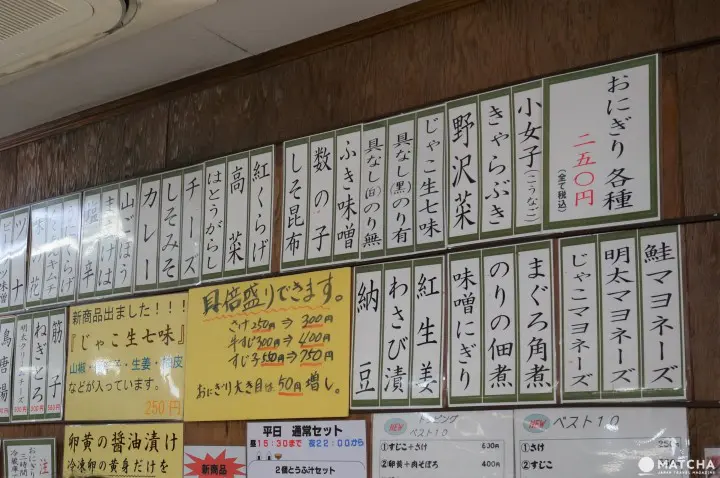 おにぎり各種
二五〇円
(全て税込)
小女子(こうなご)
きゃらぶき
野沢菜
じゃこ生七味
具なし(黒)のり有
具なし(白)のり無
ふき味噌
数の子
しそ昆布
紅くらげ
高菜
はとうがらし
チーズ
しそみそ
カレー
山ごぼう
鮭マヨネーズ
明太マヨネーズ
じゃこマヨネーズ
まぐろ角煮
のりの佃煮
味噌にぎり
紅生姜
わさび漬
納豆
具倍盛りできます。
さけ250円⇒300円
牛すじ300円⇒400円
すじ子550円⇒750円
おにぎり大き目は50円増し。
新商品出ました!!!
『じゃこ生七味』
などが入っています。
250円
筋子
ねぎとろ
明太クリームチーズ
卵黄の醤油漬け
冷凍卵の黄身だけを
新商品!
平日 通常セット
昼15:30まで 夜22:00から
2個とうふ汁セット
NEW
トッピング
ベスト10
①すじこ+さけ 630円
②卵黄+肉そぼろ 400円
NEW
ベスト10
①さけ
②すじこ
MATCHA
JAPAN TRAVEL MAGAZINE